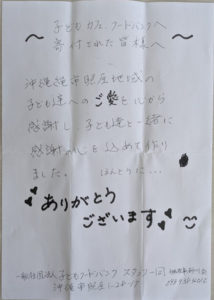 子どもカフェ、フードバンクへ
寄付された皆様へ
沖縄 市照屋地域の
子ども達へのご愛を心から
感謝し子ども達と一緒に
感謝の心を込めて作り
ました。 ほんとうに…
ありがとう
ございます
一般社団法人 子どもフードバンク スタッフ一同
沖縄市照屋1-24-17